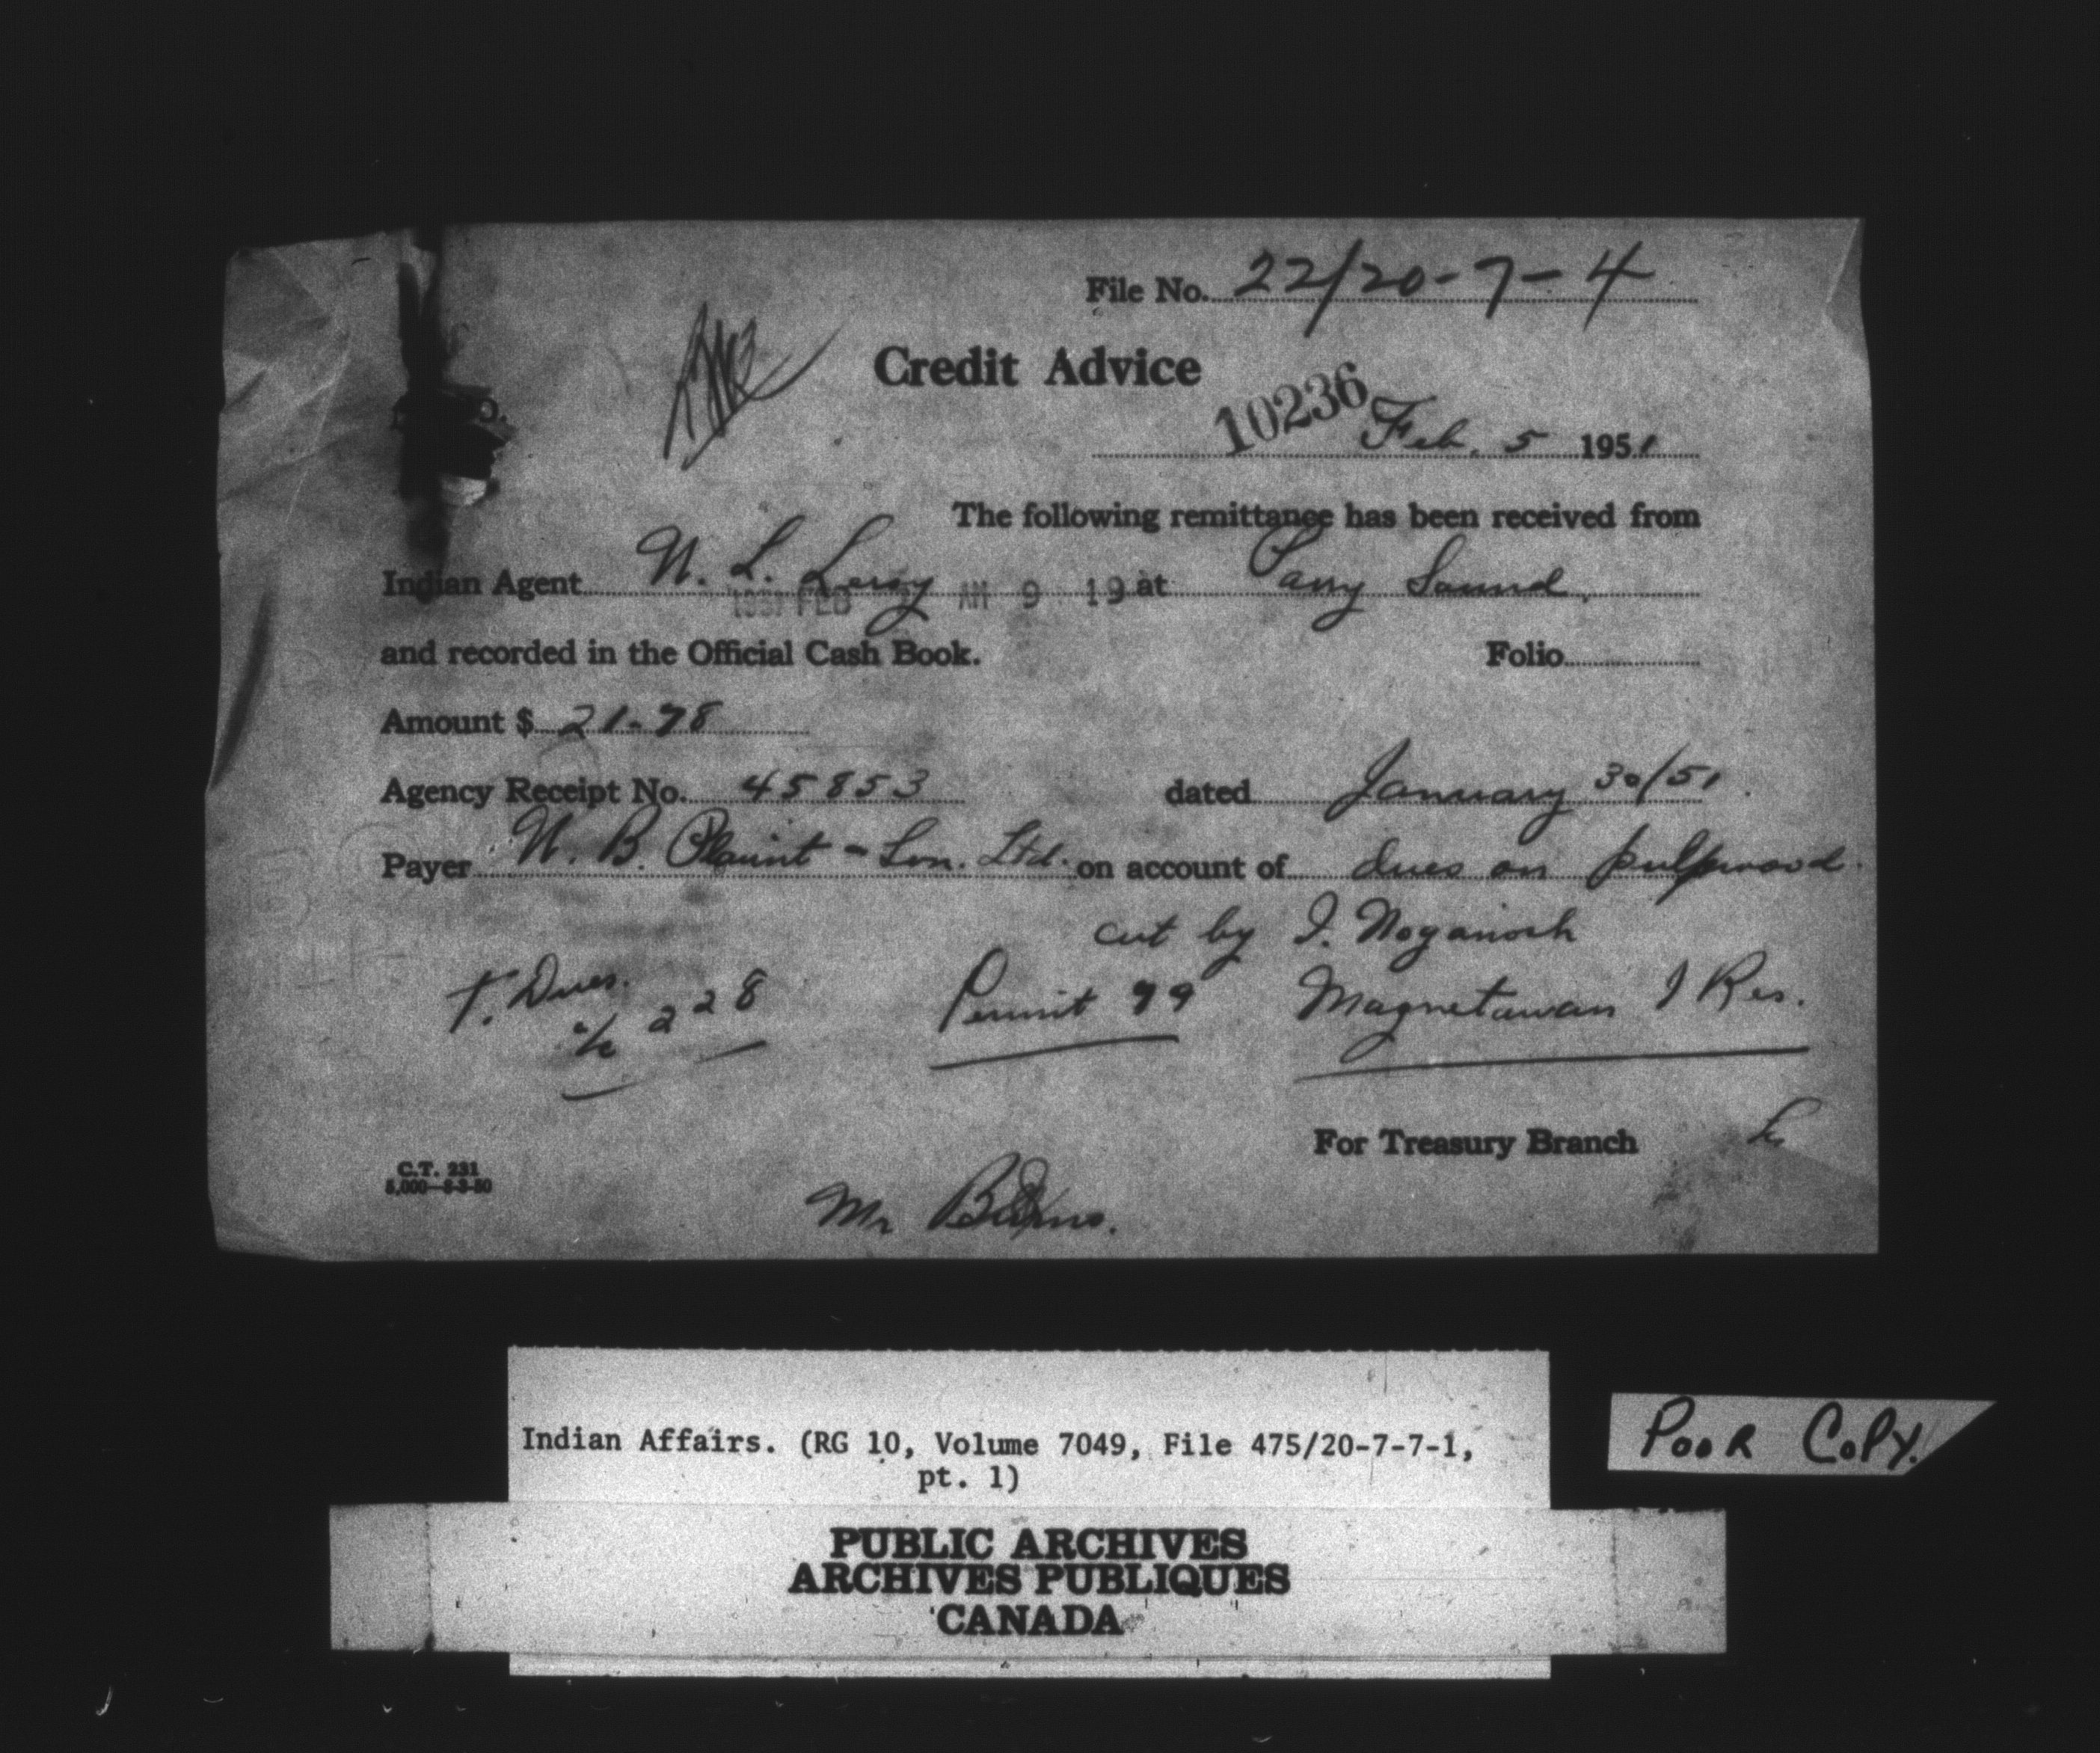 File No. 22/20-7-4
Credit Advice
10236 Feb. 5 1951
The following remittance has been received from
Indian Agent N. L. Leroy at Parry Sound.
1951 FEB AM 9 19
and recorded in the Official Cash Book. Folio
Amount $ 21-78
Agency Receipt No. 45853 dated January 30/51.
Payer W. B. Plaunt - Son. Ltd. on account of dues on pulpwood.
cut by I. Noganosh
T. Dues. Permit 99 Magnetawan I Res.
a/c 228
For Treasury Branch
C.T. 231
5,000—8-3-50
Mr
Indian Affairs. (RG 10, Volume 7049, File 475/20-7-7-1,
pt. 1)
POOR COPY.
PUBLIC ARCHIVES
ARCHIVES PUBLIQUES
CANADA